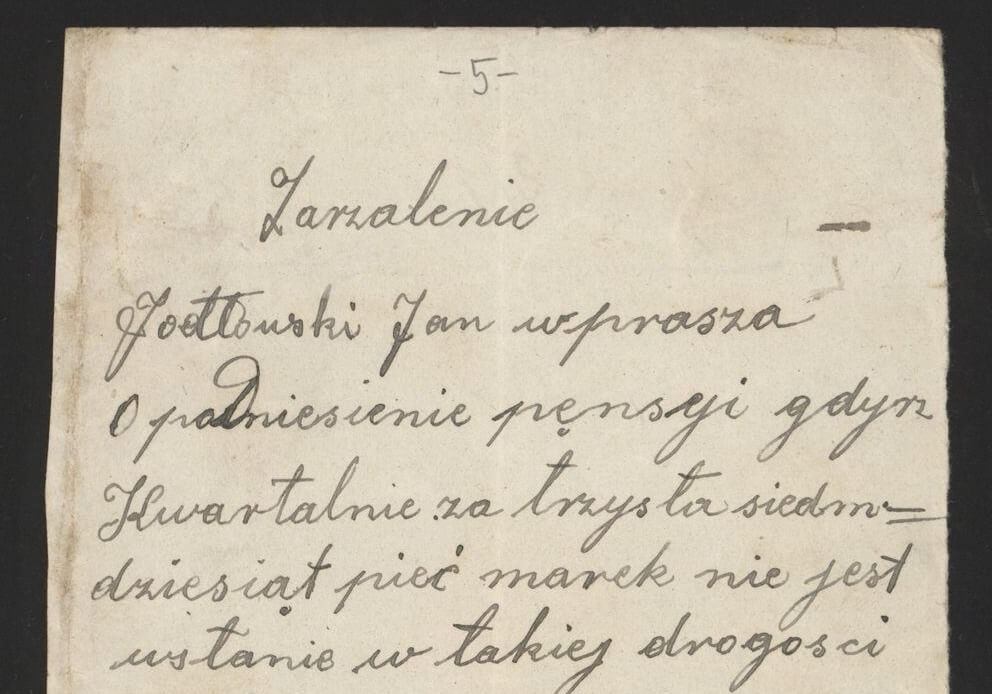 -5-
Zarzalenie
Jodłouski Jan wprasza
O podniesienie pęnsyji gdyrz
Kwartalnie za trzysta siedm=
dziesiąt pieć marek nie jest
wstanie w takiej drogosci